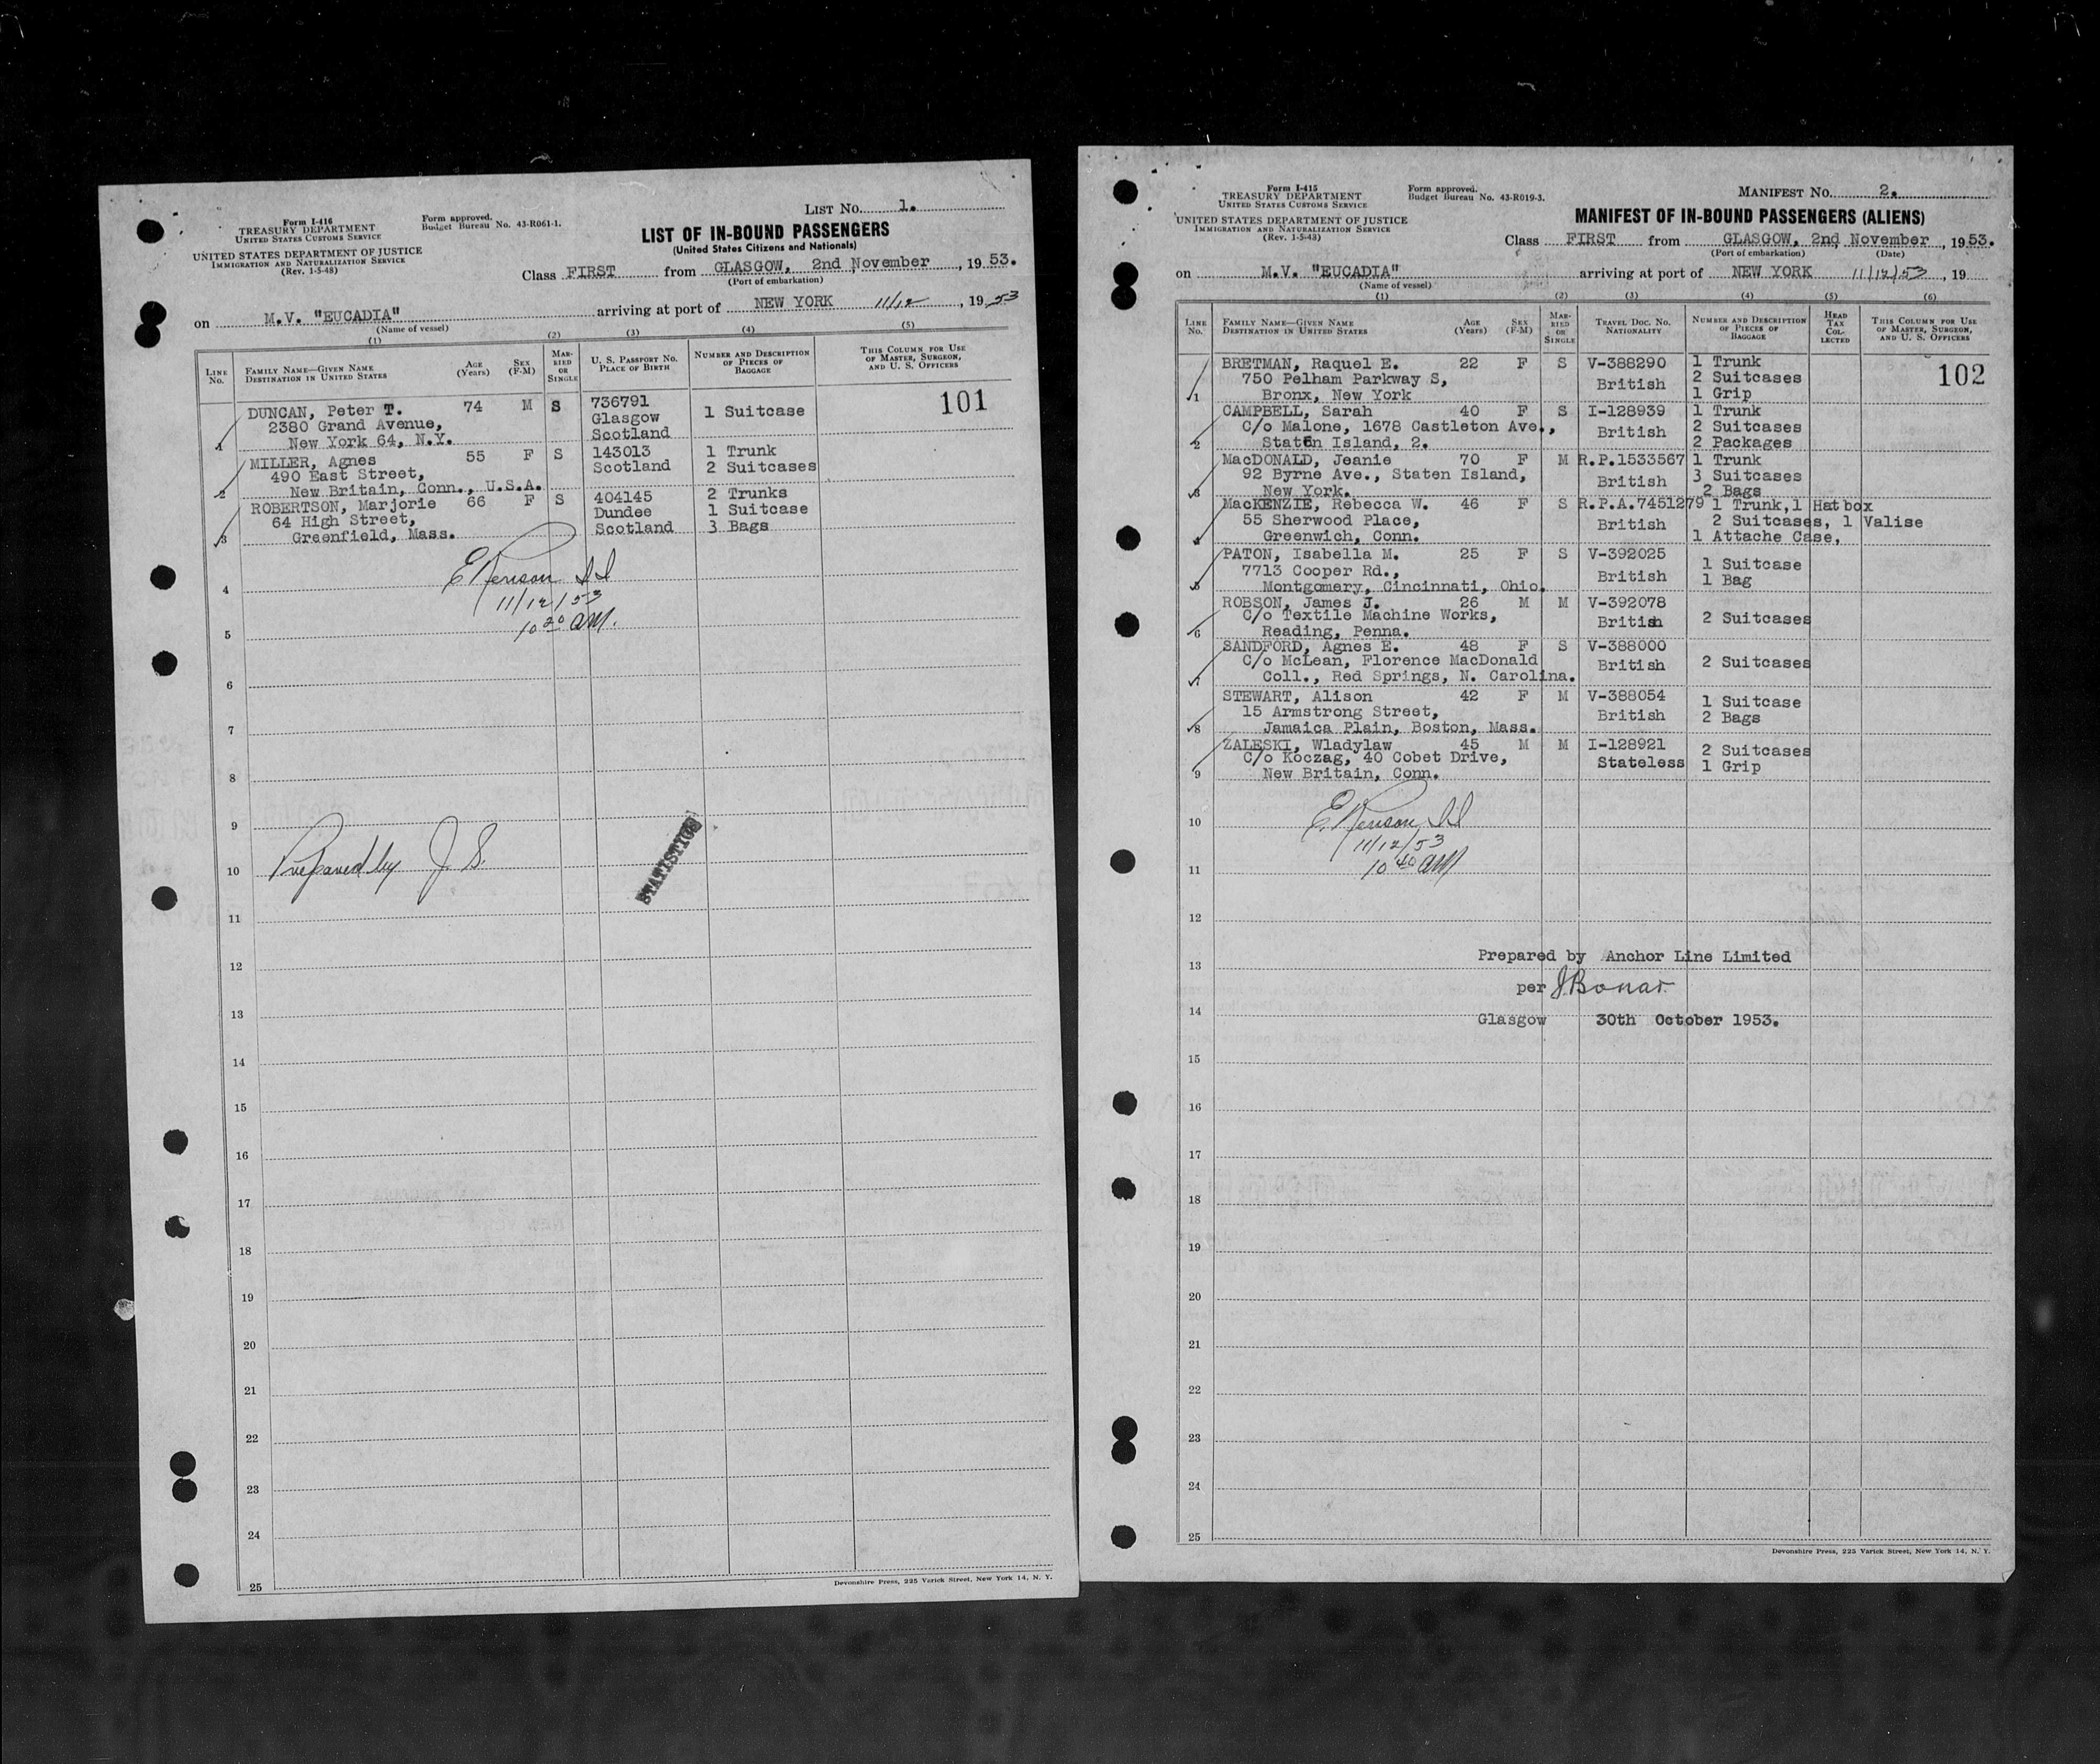 Form I-416
TREASURY DEPARTMENT
UNITED STATES CUSTOMS SERVICE
Form approved.
Budget Bureau No. 43-R061-1.
LIST NO. 1.
UNITED STATES DEPARTMENT OF JUSTICE
IMMIGRATION AND NATURALIZATION SERVICE
(Rev. 1-5-48)
LIST OF IN-BOUND PASSENGERS
(United States Citizens and Nationals)
Class FIRST from GLASGOW, 2nd November, 1953.
(Port of embarkation)
on M.V. "EUCADIA" arriving at port of NEW YORK 11/12, 1953
(Name of vessel)
(1) (2) (3) (4) (5)
LINE No. FAMILY NAME—GIVEN NAME DESTINATION IN UNITED STATES AGE (Years) SEX (F-M) MARRIED OR SINGLE U. S. PASSPORT NO. PLACE OF BIRTH NUMBER AND DESCRIPTION OF PIECES OF BAGGAGE THIS COLUMN FOR USE OF MASTER, SURGEON, AND U. S. OFFICERS
101
1 DUNCAN, Peter T. 74 M S 736791
2380 Grand Avenue, Glasgow 1 Suitcase
New York 64, N.Y. Scotland
2 MILLER, Agnes 55 F S 143013 1 Trunk
490 East Street, Scotland 2 Suitcases
New Britain, Conn., U.S.A.
3 ROBERTSON, Marjorie 66 F S 404145 2 Trunks
64 High Street, Dundee 1 Suitcase
Greenfield, Mass. Scotland 3 Bags
11/12/53
10 30 AM.
4
5
6
7
8
9
10 Prepared by J. S.
STATISTICS
11
12
13
14
15
16
17
18
19
20
21
22
23
24
25
Devonshire Press, 225 Varick Street, New York 14, N. Y.
Form I-415
TREASURY DEPARTMENT
UNITED STATES CUSTOMS SERVICE
Form approved.
Budget Bureau No. 43-R019-3.
MANIFEST NO. 2.
UNITED STATES DEPARTMENT OF JUSTICE
IMMIGRATION AND NATURALIZATION SERVICE
(Rev. 1-5-48)
MANIFEST OF IN-BOUND PASSENGERS (ALIENS)
Class FIRST from GLASGOW, 2nd November, 1953.
(Port of embarkation) (Date)
on M.V. "EUCADIA" arriving at port of NEW YORK 11/12/53, 19
(Name of vessel)
(1) (2) (3) (4) (5) (6)
LINE No. FAMILY NAME—GIVEN NAME DESTINATION IN UNITED STATES AGE (Years) SEX (F-M) MARRIED OR SINGLE TRAVEL DOC. NO. NATIONALITY NUMBER AND DESCRIPTION OF PIECES OF BAGGAGE HEAD TAX COLLECTED THIS COLUMN FOR USE OF MASTER, SURGEON, AND U. S. OFFICERS
102
1 BRETMAN, Raquel E. 22 F S V-388290 1 Trunk
750 Pelham Parkway S, British 2 Suitcases
Bronx, New York 1 Grip
2 CAMPBELL, Sarah 40 F S I-128939 1 Trunk
C/o Malone, 1678 Castleton Ave., British 2 Suitcases
Staten Island, 2. 2 Packages
3 MacDONALD, Jeanie 70 F M R.P.1533567 1 Trunk
92 Byrne Ave., Staten Island, British 3 Suitcases
New York. 2 Bags
4 MacKENZIE, Rebecca W. 46 F S R.P.A.7451279 1 Trunk, 1 Hat box
55 Sherwood Place, British 2 Suitcases, 1 Valise
Greenwich, Conn. 1 Attache Case,
5 PATON, Isabella M. 25 F S V-392025 1 Suitcase
7713 Cooper Rd., British 1 Bag
Montgomery, Cincinnati, Ohio.
6 ROBSON, James J. 26 M M V-392078
C/o Textile Machine Works, British 2 Suitcases
Reading, Penna.
7 SANDFORD, Agnes E. 48 F S V-388000
C/o McLean, Florence MacDonald British 2 Suitcases
Coll., Red Springs, N. Carolina.
8 STEWART, Alison 42 F M V-388054 1 Suitcase
15 Armstrong Street, British 2 Bags
Jamaica Plain, Boston, Mass.
9 ZALESKI, Wladylaw 45 M M I-128921 2 Suitcases
C/o Koczag, 40 Cobet Drive, Stateless 1 Grip
New Britain, Conn.
10
11/12/53
10 40 AM
11
12
Prepared by Anchor Line Limited
13
per J Bonar
14
Glasgow 30th October 1953.
15
16
17
18
19
20
21
22
23
24
25
Devonshire Press, 225 Varick Street, New York 14, N. Y.